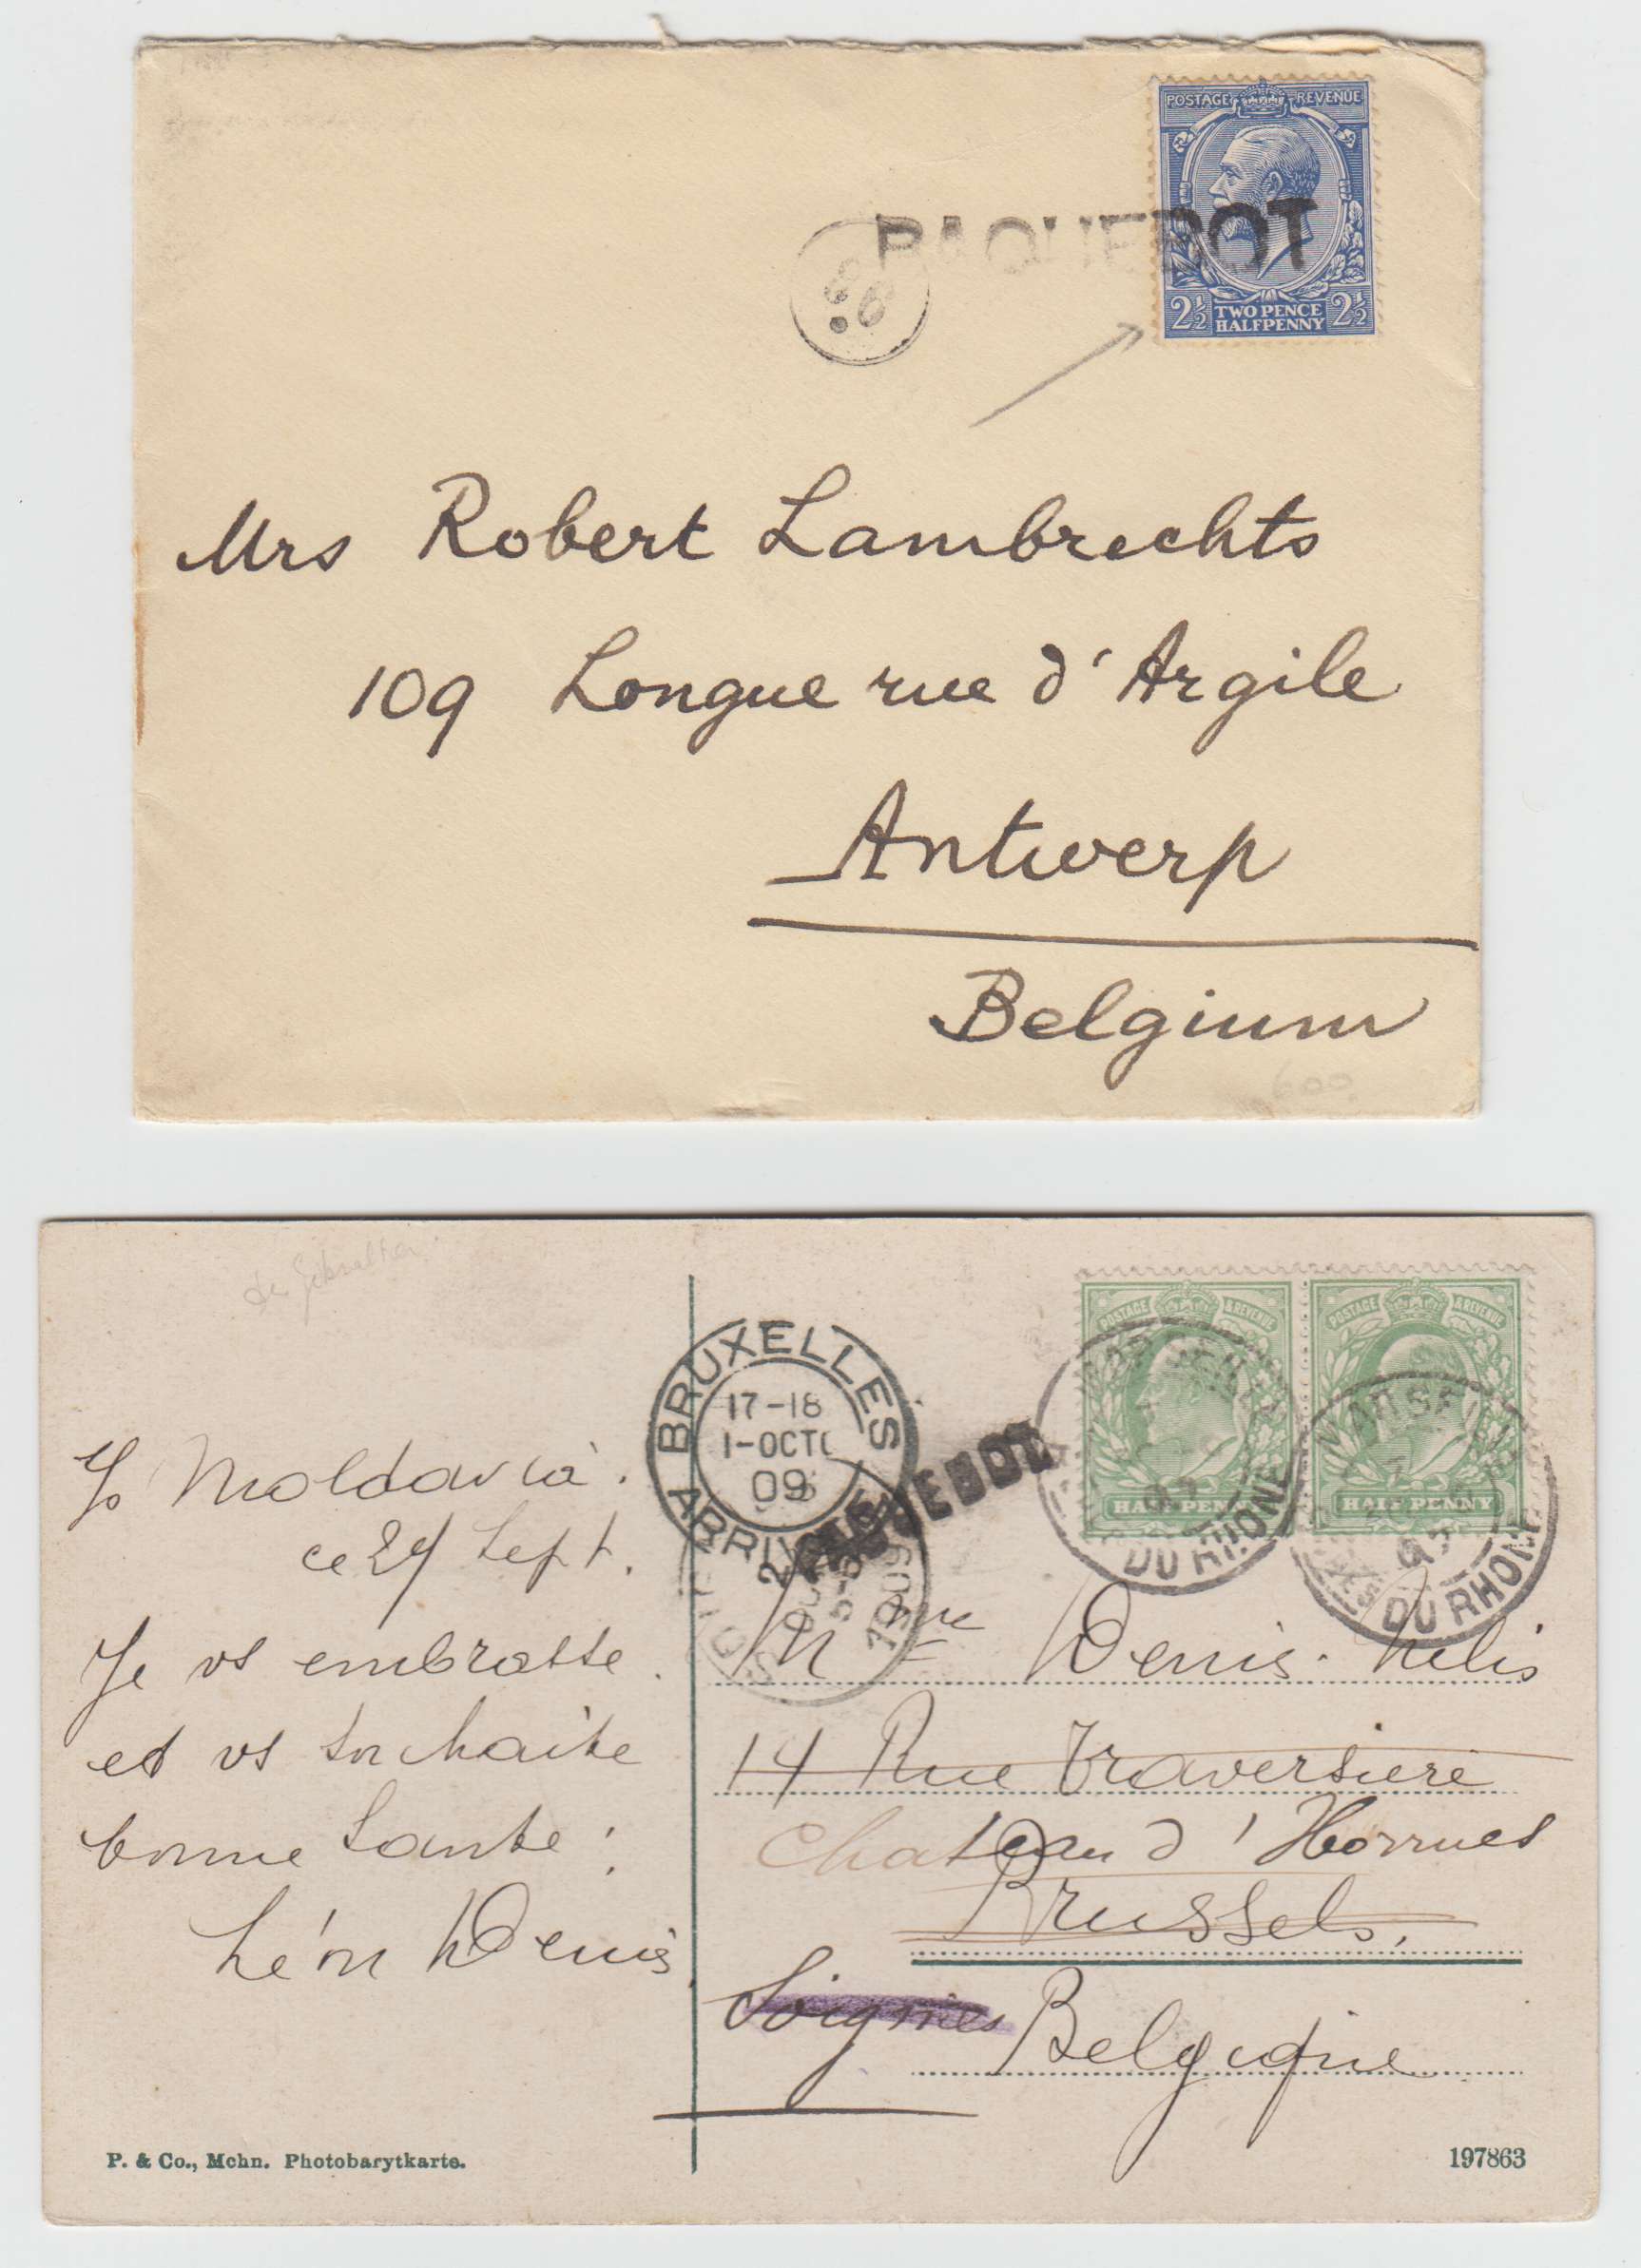 POSTAGE REVENUE
PAQUEBOT
2½ TWO PENCE HALFPENNY 2½
Mrs Robert Lambrechts
109 Longue rue d'Argile
Antwerp
Belgium
600
POSTAGE & REVENUE
POSTAGE & REVENUE
HALF PENNY
HALF PENNY
BRUXELLES
17-18
1-OCTO
09
ARRIVEE
PAQUEBOT
1909
MARSEILLE
DU RHONE
MARSEILLE
DU RHONE
Moldavia.
ce 27 Sept.
Je vs embrasse
et vs souhaite
bonne Santé!
Léon Denis
Mme Denis. Nélis
14 Rue Traversiere
Chateau d'Horrues
Brussels.
Soignies Belgique
P. & Co., Mchn. Photobarytkarte.
197863